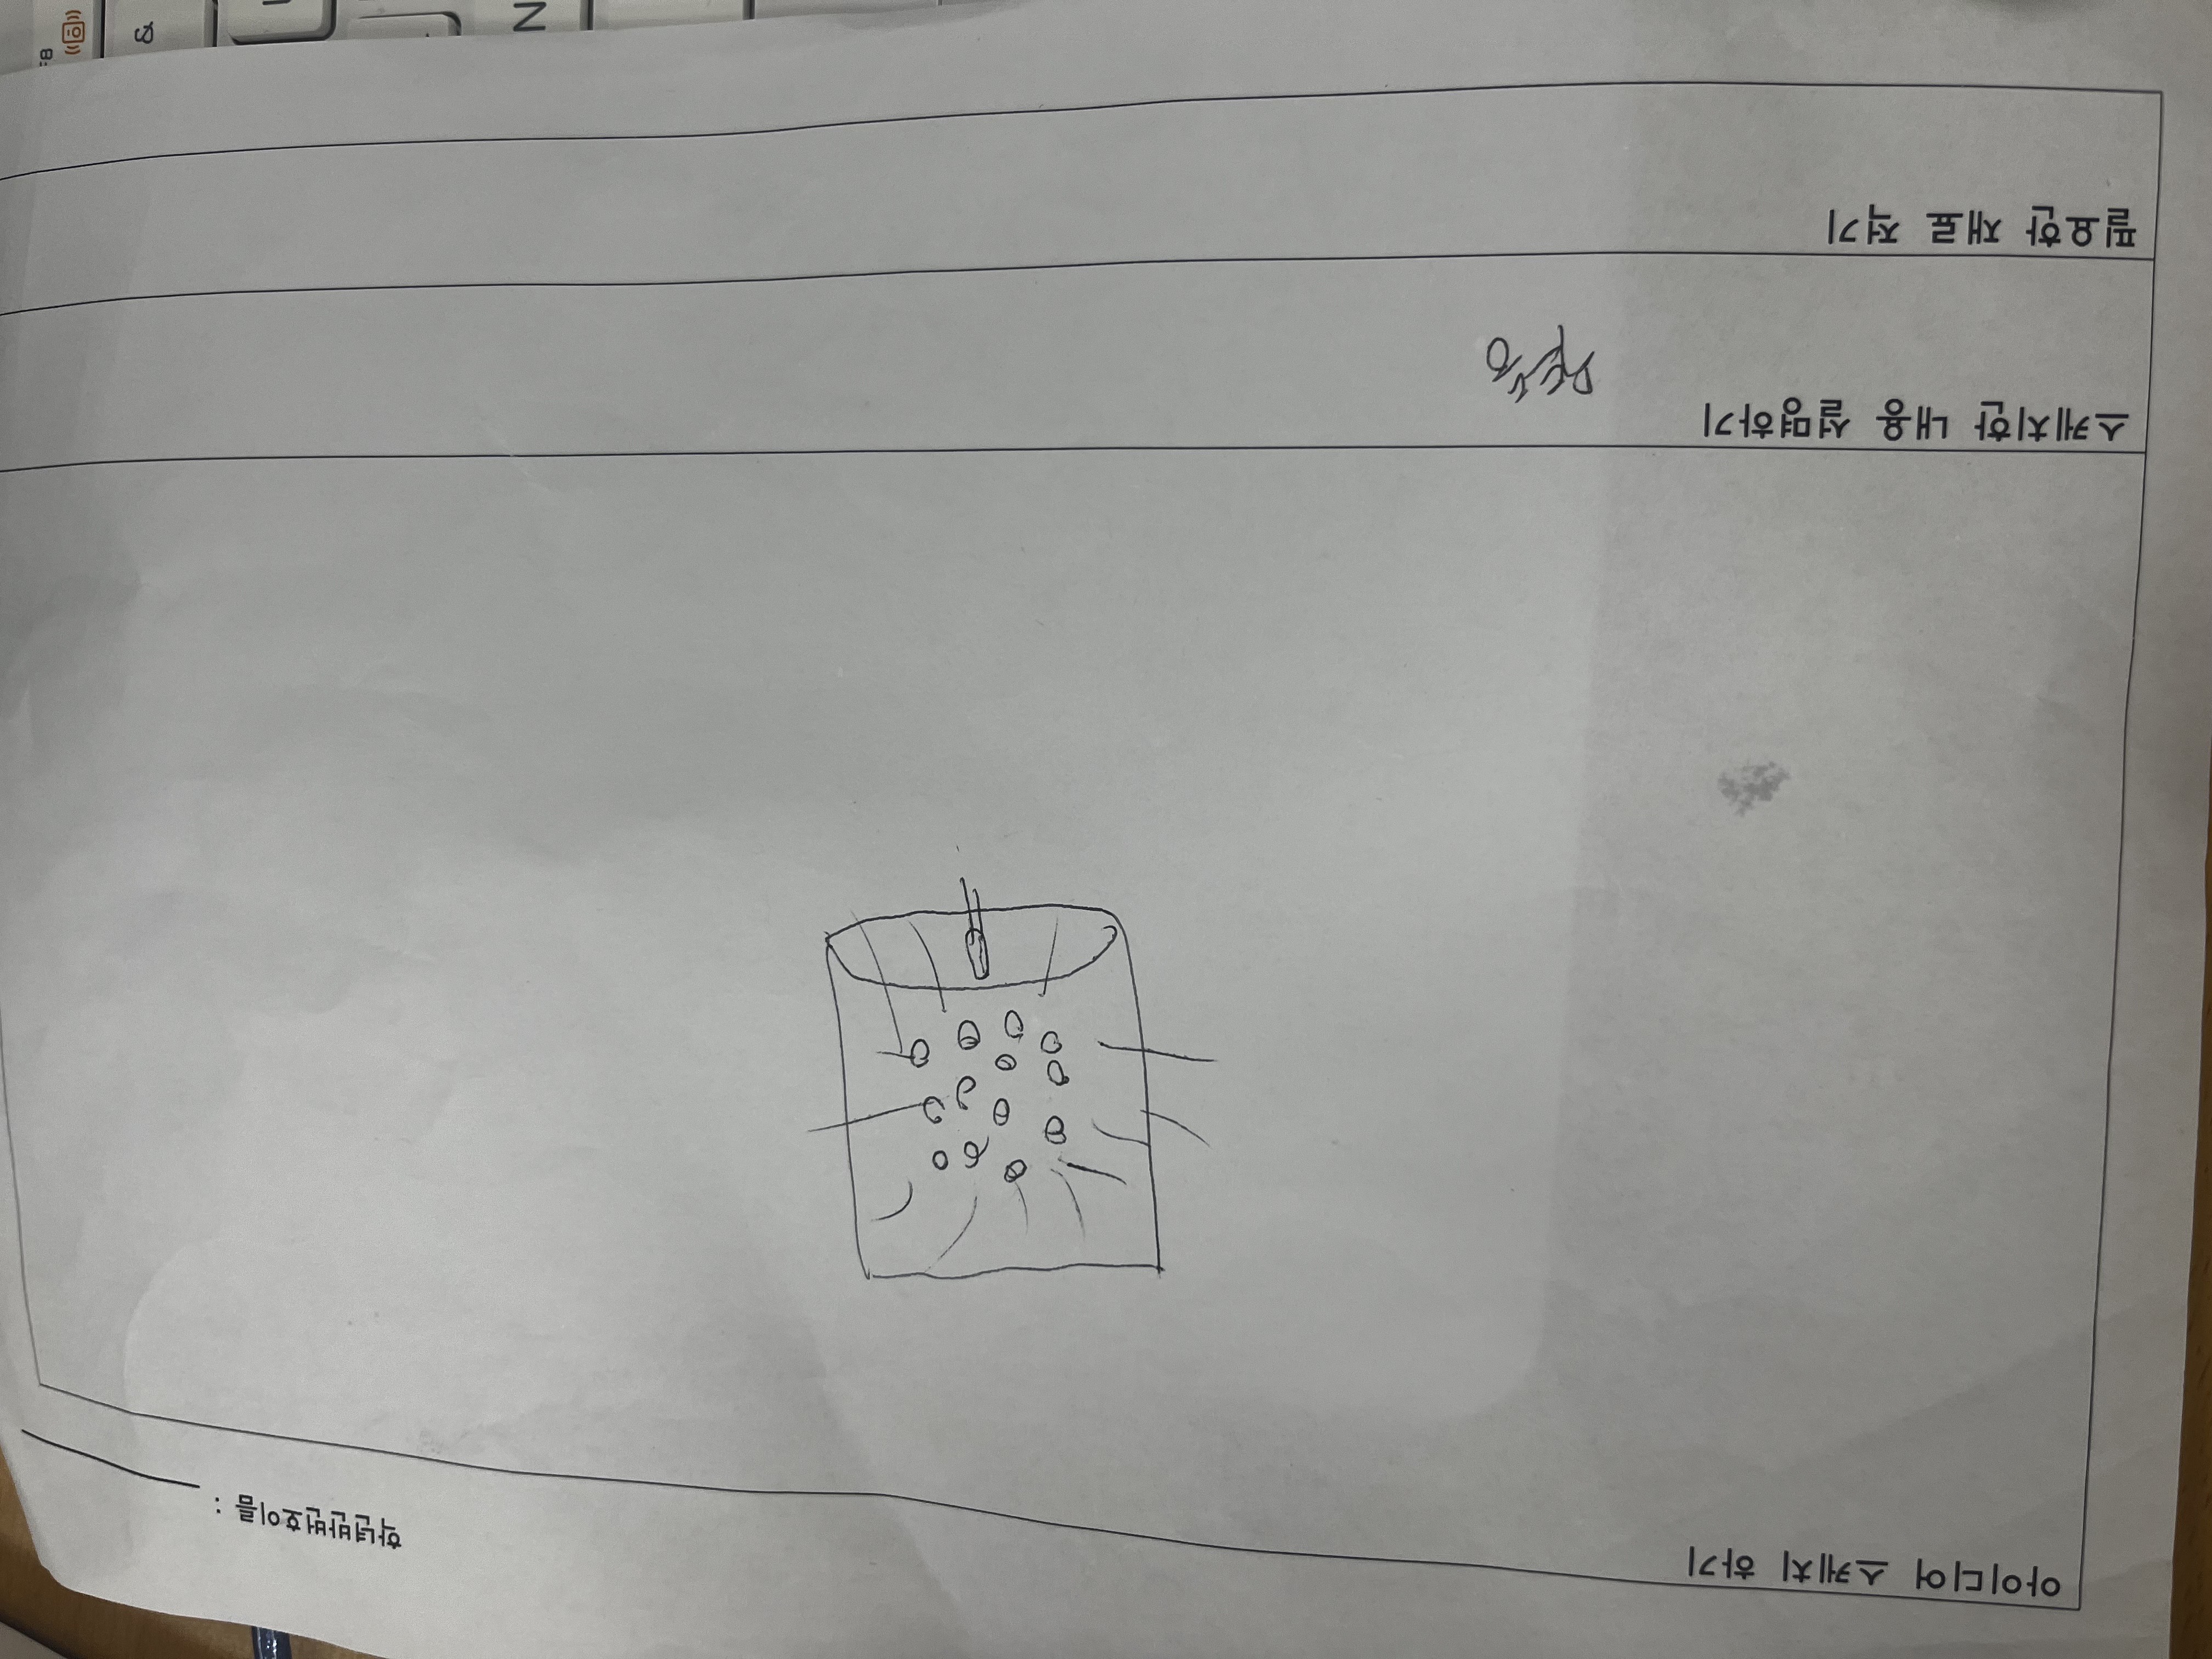 학년반번호이름 :
아이디어 스케치 하기
스케치한 내용 설명하기
필요한 재료 적기
F8
N